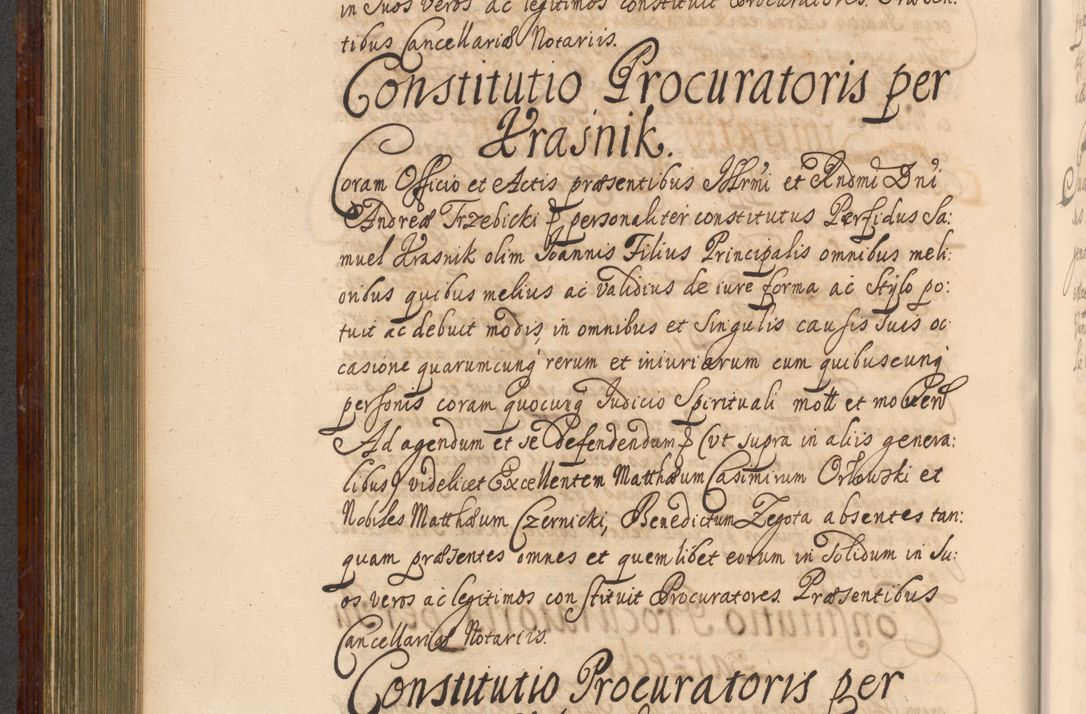 in suos veros ac legitimos constituit Procuratores. Præsen:
tibus Cancellariæ Notariis.
Constitutio Procuratoris per
Krasnik.
Coram Officio et Actis præsentibus Illrmi et Rndmi Dni
Andreæ Trzebicki personaliter constitutus Perfidus Sa:
muel Krasnik olim Joannis Filius Principalis omnibus meli:
oribus quibus melius ac validius de iure forma ac Stylo po:
tuit ac debuit modis, in omnibus et singulis causis suis oc
casione quarumcunq rerum et iniuriarum cum quibuscunq
personis coram quocunq Judicio Spirituali mott et moven
Ad agendum et se defendendum (ut supra in aliis genera:
libus) videlicet Excellentem Matthæum Casimirum Orłowski et
Nobiles Matthæum Czernicki, Benedictum Zegota absentes tan:
quam præsentes omnes et quemlibet eorum in solidum in su:
os veros ac legitimos constituit Procuratores. Præsentibus
Cancellariæ Notariis.
Constitutio Procuratoris per